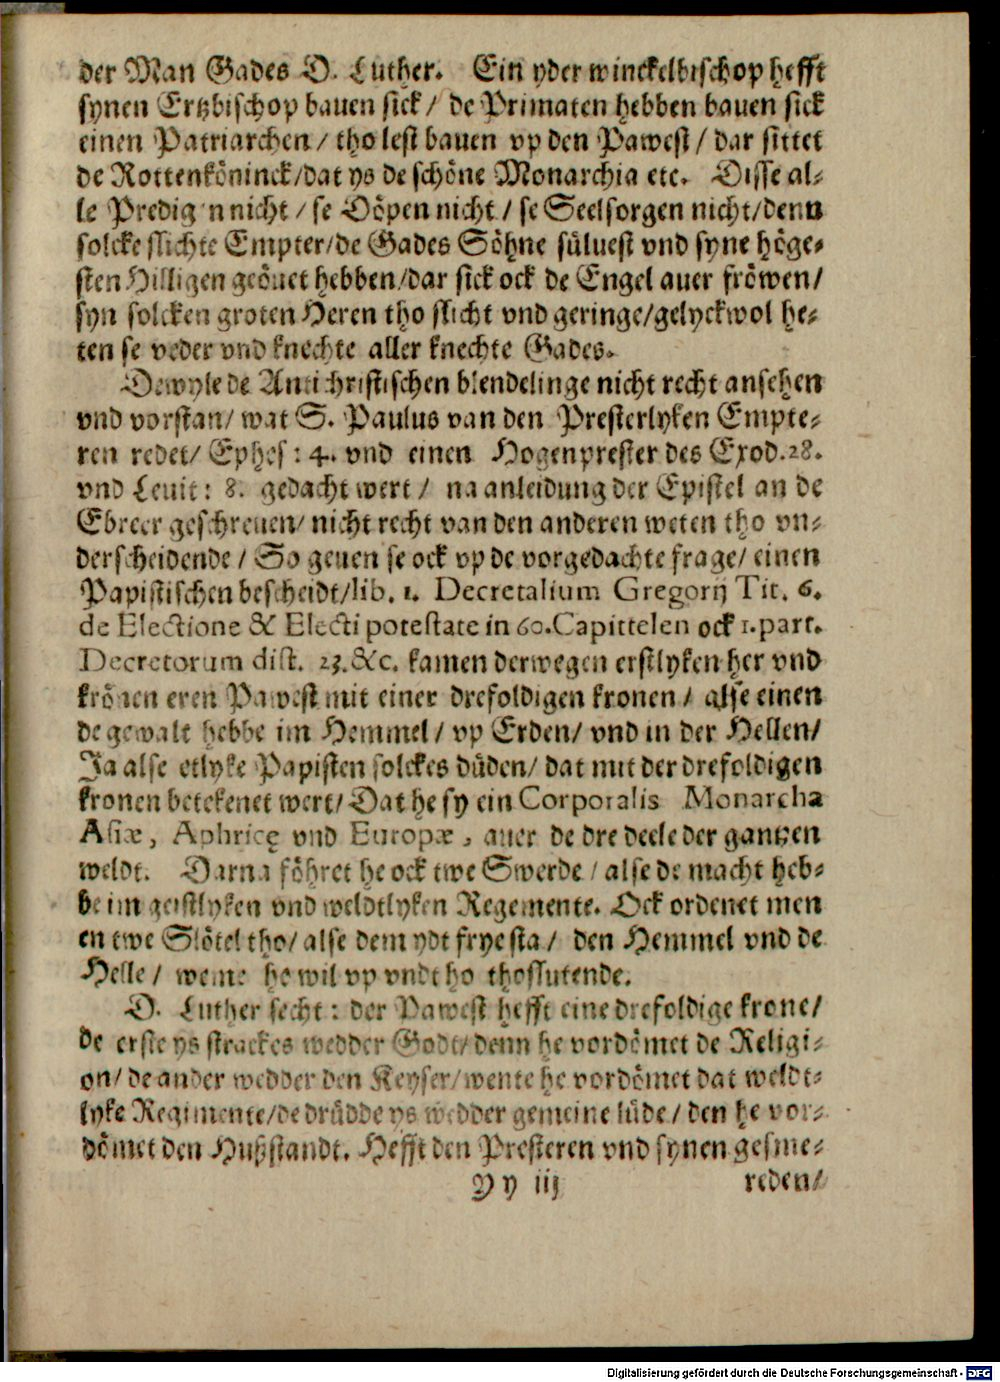 der Man Gades D. Luther. Ein yder winckelbischop hefft
synen Ertzbischop bauen sick / de Primaten hebben bauen sick
einen Patriarchen / tho lest bauen vp den Pawest / dar sittet
de Rottenköninck/dat ys de schöne Monarchia etc. Disse al-
le Predigen nicht / se Döpen nicht / se Seelsorgen nicht/denn
solcke slichte Empter/de Gades Söhne süluest vnd syne höge-
sten Hilligen geöuet hebben/dar sick ock de Engel auer fröwen/
syn solcken groten Heren tho slicht vnd geringe/gelyckwol he-
ten se veder vnd knechte aller knechte Gades.
Dewyle de Antichristischen blendelinge nicht recht ansehen
vnd vorstan/ wat S. Paulus van den Presterlyken Empte-
ren redet/ Ephes: 4. vnd einen Hogenprester des Exod.28.
vnd Leuit: 8. gedacht wert / na anleidung der Epistel an de
Ebreer geschreuen/ nicht recht van den anderen weten tho vn-
derscheidende / So geuen se ock vp de vorgedachte frage/ einen
Papistischen bescheidt/lib. 1. Decretalium Gregorij Tit. 6.
de Electione & Electi potestate in 60.Capittelen ock 1.part.
Decretorum dist. 23.&c. kamen derwegen erstlyken her vnd
krönen eren Pawest mit einer drefoldigen kronen / alse einen
de gewalt hebbe im Hemmel / vp Erden/ vnd in der Hellen/
Ja alse etlyke Papisten solckes düden/ dat mit der drefoldigen
kronen betekenet wert/ Dat he sy ein Corporalis Monarcha
Asiæ, Aphricę vnd Europæ, auer de dre deele der gantzen
weldt. Darna föhret he ock twe Swerde / alse de macht heb-
be im geistlyken vnd weldtlyken Regemente. Ock ordenet men
en twe Slötel tho/ alse dem ydt frye sta / den Hemmel vnd de
Helle / weme he wil vp vndt ho thoslutende.
D. Luther secht: der Pawest hefft eine drefoldige krone/
de erste ys strackes wedder Godt/ denn he vordömet de Religi-
on/ de ander wedder den Keyser/wente he vordömet dat weldt-
lyke Regimente/de drüdde ys wedder gemeine lüde / den he vor-
dömet den Hußstandt. Hefft den Presteren vnd synen gesme-
Yy iij reden/
Digitalisierung gefördert durch die Deutsche Forschungsgemeinschaft - DFG